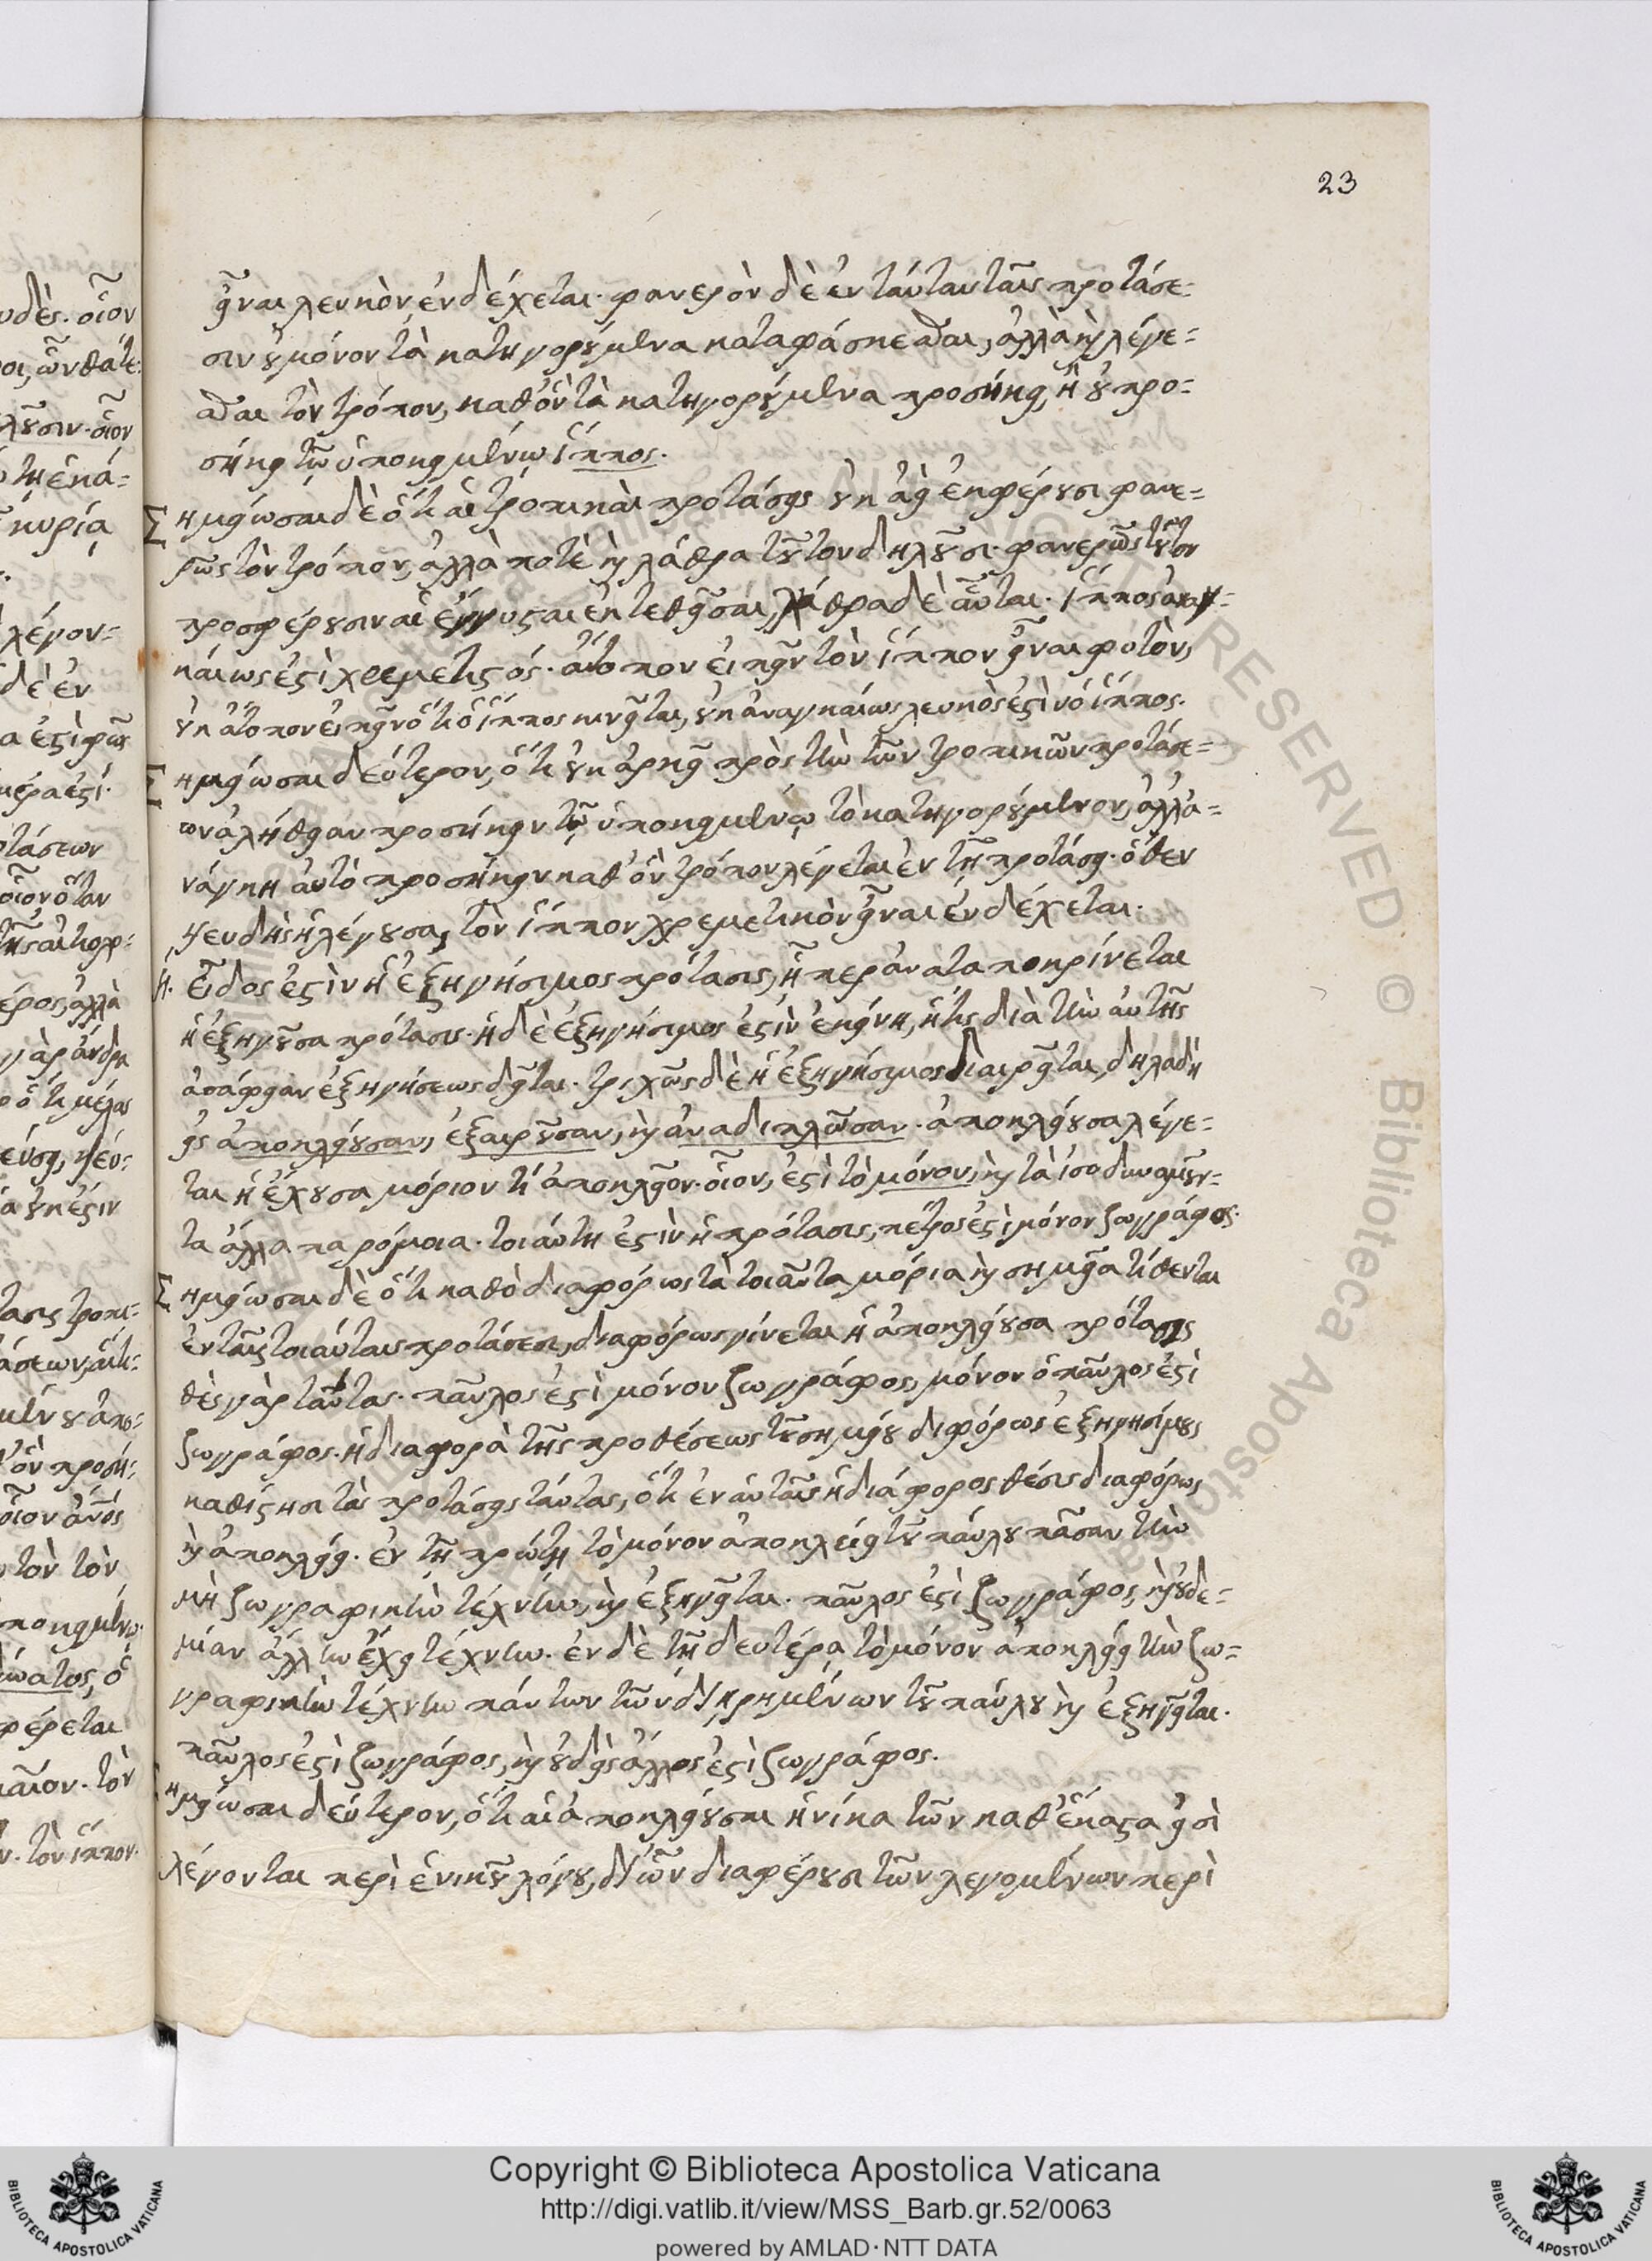 23
εἶναι λευκὸν ἐνδέχεται. φανερὸν δὲ ἐν ταύταις ταῖς προτάσε=
σιν οὐ μόνον τὰ κατηγορούμενα καταφάσκεσθαι, ἀλλὰ καὶ λέγε=
σθαι τὸν τρόπον, καθ' ὃν τὰ κατηγορούμενα προσήκει, ἢ οὐ προ=
σήκει τῷ ὑποκειμένῳ ἵππος.
Σημείωσαι δὲ ὅτι αἱ τροπικαὶ προτάσεις οὐκ ἀεὶ ἐπιφέρουσι φανε=
ρῶς τὸν τρόπον, ἀλλὰ ποτὲ καὶ λάθρα τοῦτον δηλοῦσι. φανερῶς τοῦτον
προσφέρουσιν αἱ ἔγγυς αι ἐκτεθεῖσαι, λάθρα δὲ αὗται. ἵππος ἀναγ=
καίως ἐστὶ χρεμετιστός. ἄτοπον εἰπεῖν τὸν ἵππον εἶναι φυτὸν,
οὐκ ἄτοπον εἰπεῖν ὅτι ὁ ἵππος κινεῖται, οὐκ ἀναγκαίως λευκὸς ἐστὶν ὁ ἵππος.
Σημείωσαι δεύτερον, ὅτι οὐκ ἀρκεῖ πρὸς τὴν τῶν τροπικῶν προτάσε=
ων ἀλήθειαν προσήκειν τῷ ὑποκειμένῳ τὸ κατηγορούμενον, ἀλλ' ἀ=
νάγκη αὐτὸ προσήκειν καθ' ὃν τρόπον λέγεται ἐν τῇ προτάσει. ὅθεν
ψευδὴς ἡ λέγουσα, τὸν ἵππον χρεμετικὸν εἶναι ἐνδέχεται.
η. Εἶδος ἐστὶν ἡ ἐξηγήσιμος πρότασις, ᾗπερ ἀνταποκρίνεται
ἡ ἐξηγοῦσα πρότασις. ἡ δὲ ἐξηγήσιμος ἐστὶν ἐκείνη, ἥτις διὰ τὴν αὐτῆς
ἀσάφειαν ἐξηγήσεως δεῖται. τριχῶς δὲ ἡ ἐξηγήσιμος διαιρεῖται, δηλαδὴ
εἰς ἀποκλείουσαν, ἐξαιροῦσαν, καὶ ἀναδιπλῶσαν. ἀποκλείουσα λέγε=
ται ἡ ἔχουσα μόριον τι ἀποκλεῖον. οἷον, ἐστὶ τὸ μόνον, καὶ τὰ ἰσοδυναμοῦν=
τα ἄλλα παρόμοια. τοιαύτη ἐστὶν ἡ πρότασις, πέτρος ἐστὶ μόνον ζωγράφος.
Σημείωσαι δὲ ὅτι καθὸ διαφόρως τὰ τοιαῦτα μόρια καὶ σημεῖα τίθενται
ἐν ταῖς τοιαύταις προτάσεσι, διαφόρως γίνεται ἡ ἀποκλείουσα πρότασις
θὲς γὰρ ταύτας. παῦλος ἐστὶ μόνον ζωγράφος, μόνον ὁ παῦλος ἐστὶ
ζωγράφος. ἡ διαφορὰ τῆς προθέσεως τοῦ σημείου διφόρως ἐξηγησίμους
καθίστησι τὰς προτάσεις ταύτας, ὅτι ἐν αὐταῖς ἡ διάφορος θέσις διαφόρως
καὶ ἀποκλείει. ἐν τῇ πρώτῃ τὸ μόνον ἀποκλείει τοῦ παύλου πᾶσαν τὴν
μὴ ζωγραφικὴν τέχνην, καὶ ἐξηγεῖται. παῦλος ἐστὶ ζωγράφος, καὶ οὐδε=
μίαν ἄλλην ἔχει τέχνην. ἐν δὲ τῇ δευτέρᾳ τὸ μόνον ἀποκλείει τὴν ζω=
γραφικὴν τέχνην πάντων τῶν διῃρημένων τοῦ παύλου καὶ ἐξηγεῖται.
παῦλος ἐστὶ ζωγράφος, καὶ οὐδεὶς ἄλλος ἐστὶ ζωγράφος.
ημείωσαι δεύτερον, ὅτι αἱ ἀποκλείουσαι ἡνίκα τῶν καθ' ἕκαστα εἰσὶ
λέγονται περὶ ἑνικοῦ λόγου, δι' ὧν διαφέρουσι τῶν λεγομένων περὶ
Copyright © Biblioteca Apostolica Vaticana
http://digi.vatlib.it/view/MSS_Barb.gr.52/0063
powered by AMLAD·NTT DATA